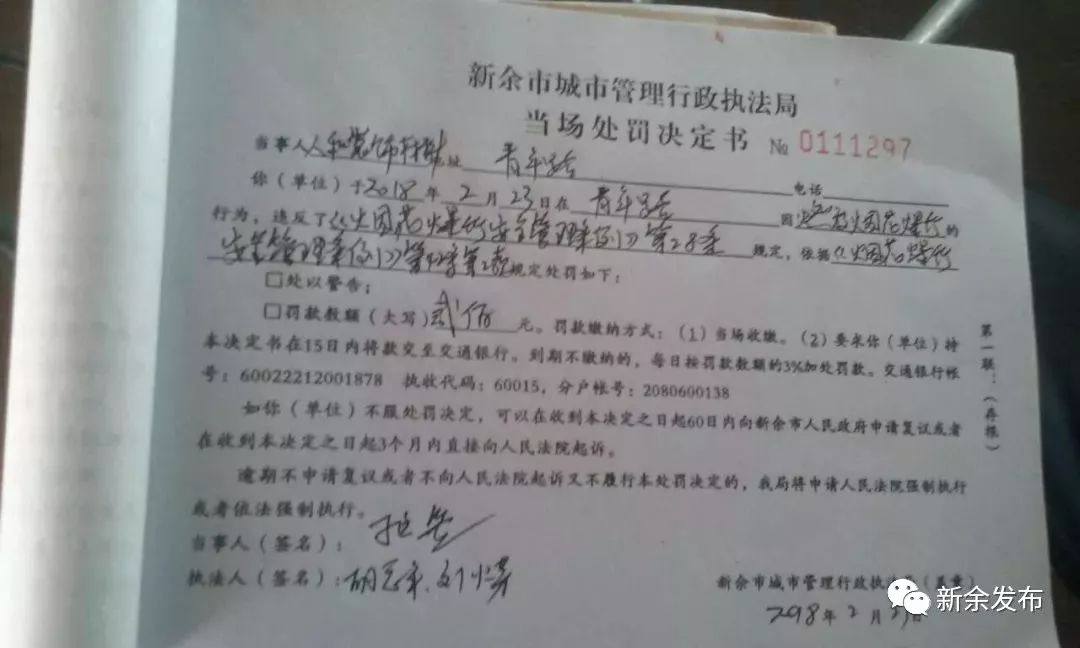 新余市城市管理行政执法局
当场处罚决定书 № 0111297
当事人 人和 址 青年路 电话
你(单位)于2018年2月23日在 青年路 因 燃放烟花爆竹的
行为,违反了《烟花爆竹安全管理条例》第28条 规定,依据《烟花爆竹
安全管理条例》第42条第2款规定处罚如下:
□处以警告;
□罚款数额(大写)贰佰 元。罚款缴纳方式:(1)当场收缴。(2)要求你(单位)持
本决定书在15日内将款交至交通银行。到期不缴纳的,每日按罚款数额的3%加处罚款。交通银行帐
号:60022212001878 执收代码:60015,分户帐号:2080600138
如你(单位)不服处罚决定,可以在收到本决定之日起60日内向新余市人民政府申请复议或者
在收到本决定之日起3个月内直接向人民法院起诉。
逾期不申请复议或者不向人民法院起诉又不履行本处罚决定的,我局将申请人民法院强制执行
或者依法强制执行。
当事人(签名):拒签
执法人(签名):
新余市城市管理行政执法局(盖章)
2018年2月23日
第一联:(存根)
新余发布